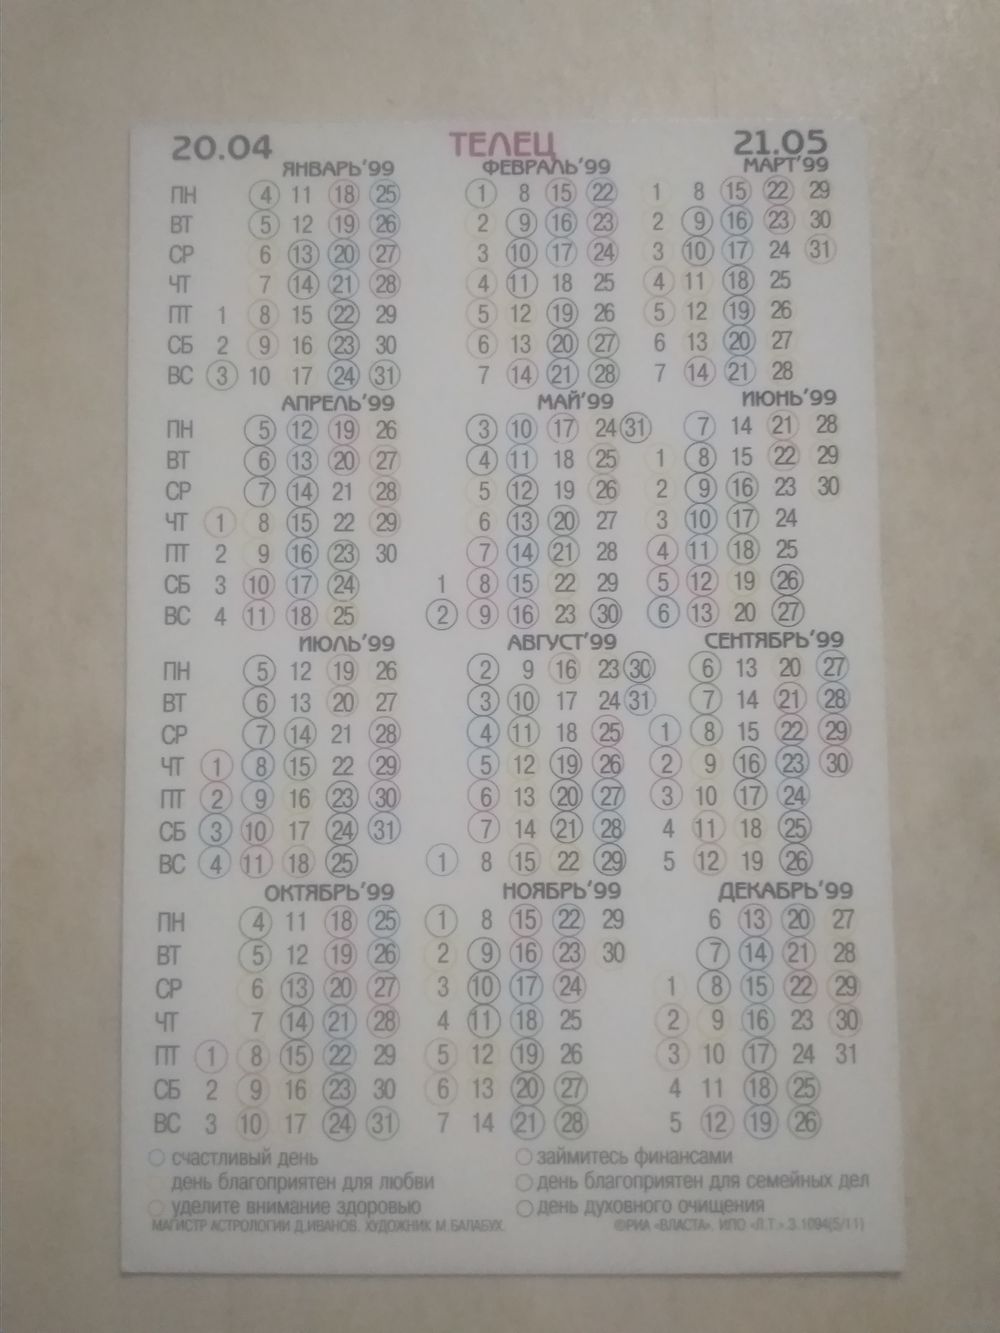 20.04 ТЕЛЕЦ 21.05
ЯНВАРЬ'99 ФЕВРАЛЬ'99 МАРТ'99
ПН 4 11 18 25 1 8 15 22 1 8 15 22 29
ВТ 5 12 19 26 2 9 16 23 2 9 16 23 30
СР 6 13 20 27 3 10 17 24 3 10 17 24 31
ЧТ 7 14 21 28 4 11 18 25 4 11 18 25
ПТ 1 8 15 22 29 5 12 19 26 5 12 19 26
СБ 2 9 16 23 30 6 13 20 27 6 13 20 27
ВС 3 10 17 24 31 7 14 21 28 7 14 21 28
АПРЕЛЬ'99 МАЙ'99 ИЮНЬ'99
ПН 5 12 19 26 3 10 17 24 31 7 14 21 28
ВТ 6 13 20 27 4 11 18 25 1 8 15 22 29
СР 7 14 21 28 5 12 19 26 2 9 16 23 30
ЧТ 1 8 15 22 29 6 13 20 27 3 10 17 24
ПТ 2 9 16 23 30 7 14 21 28 4 11 18 25
СБ 3 10 17 24 1 8 15 22 29 5 12 19 26
ВС 4 11 18 25 2 9 16 23 30 6 13 20 27
ИЮЛЬ'99 АВГУСТ'99 СЕНТЯБРЬ'99
ПН 5 12 19 26 2 9 16 23 30 6 13 20 27
ВТ 6 13 20 27 3 10 17 24 31 7 14 21 28
СР 7 14 21 28 4 11 18 25 1 8 15 22 29
ЧТ 1 8 15 22 29 5 12 19 26 2 9 16 23 30
ПТ 2 9 16 23 30 6 13 20 27 3 10 17 24
СБ 3 10 17 24 31 7 14 21 28 4 11 18 25
ВС 4 11 18 25 1 8 15 22 29 5 12 19 26
ОКТЯБРЬ'99 НОЯБРЬ'99 ДЕКАБРЬ'99
ПН 4 11 18 25 1 8 15 22 29 6 13 20 27
ВТ 5 12 19 26 2 9 16 23 30 7 14 21 28
СР 6 13 20 27 3 10 17 24 1 8 15 22 29
ЧТ 7 14 21 28 4 11 18 25 2 9 16 23 30
ПТ 1 8 15 22 29 5 12 19 26 3 10 17 24 31
СБ 2 9 16 23 30 6 13 20 27 4 11 18 25
ВС 3 10 17 24 31 7 14 21 28 5 12 19 26
счастливый день займитесь финансами
день благоприятен для любви день благоприятен для семейных дел
уделите внимание здоровью день духовного очищения
МАГИСТР АСТРОЛОГИИ Д.ИВАНОВ. ХУДОЖНИК М.БАЛАБУХ. ©РИА «ВЛАСТА». ИПО «Л.Т.».З.1094(5/11)